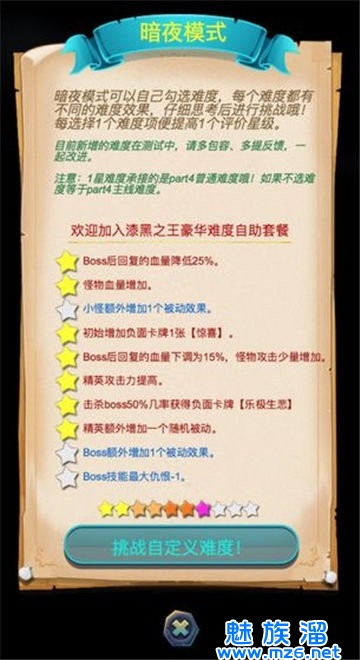 暗夜模式
暗夜模式可以自己勾选难度，每个难度都有
不同的难度效果，仔细思考后进行挑战哦！
每选择1个难度项便提高1个评价星级。
目前新增的难度在测试中，请多包容、多提反馈，一
起改进。
注意：1星难度承接的是part4普通难度哦！如果不选难
度等于part4主线难度。
欢迎加入漆黑之王豪华难度自助套餐
Boss后回复的血量降低25%。
怪物血量增加。
小怪额外增加1个被动效果。
初始增加负面卡牌1张【惊喜】。
Boss后回复的血量下调为15%，怪物攻击少量增加。
精英攻击力提高。
击杀boss50%几率获得负面卡牌【乐极生悲】
精英额外增加一个随机被动。
Boss额外增加1个被动效果。
Boss技能最大仇恨-1。
挑战自定义难度！
魅族溜
www.mz6.net